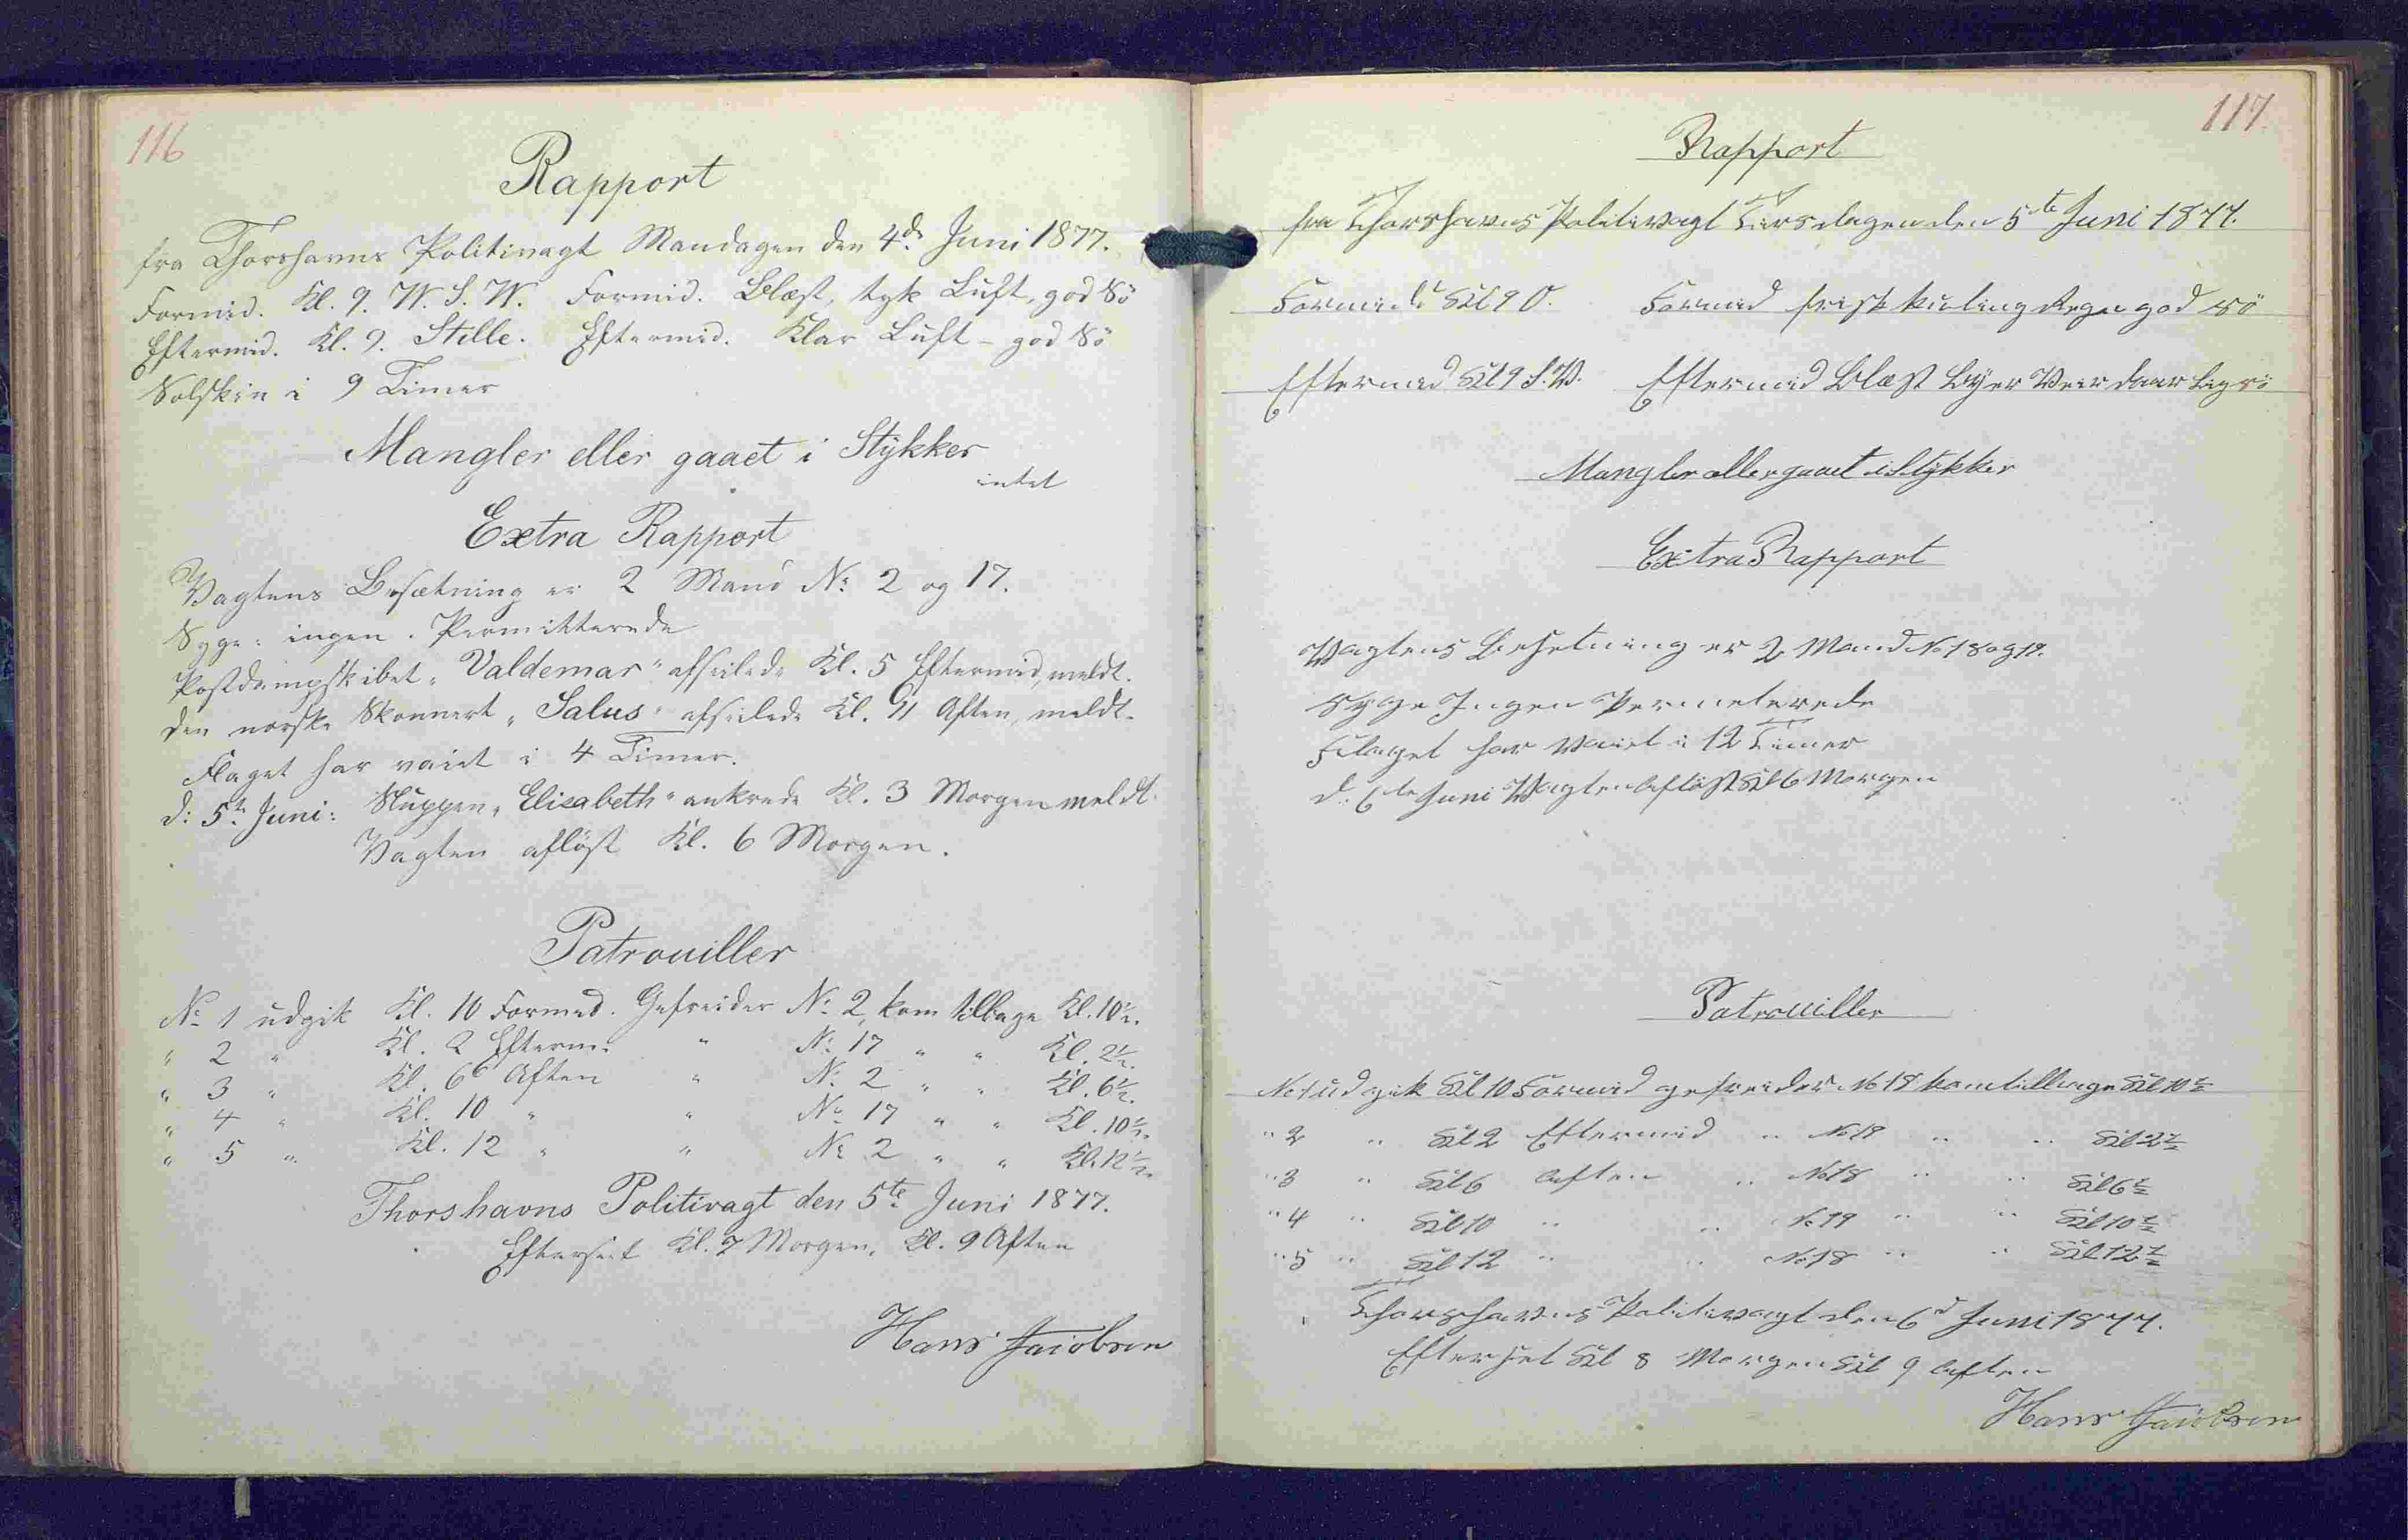 116
Rapport
fra Thorshavns Politivagt Mandagen den 4de Juni 1877.
Formid. Kl. 9. W. S. W. Formid. Blæst, tyk Luft, god Sö
Eftermid. Kl. 9. Stille. Eftermid. Klar Luft - god Sö
Solskin i 9 Timer
Mangler eller gaaet i Stÿkker
intet
Extra Rapport
Vagtens Besætning er 2 Mand No 2 og 17.
Syge: ingen. Permitterede
Postdampskibet "Valdemar" afseilede Kl. 5 Eftermid, meldt.
den norske Skonnert "Salus" afseilede Kl. 11 Aften, meldt.
Flaget har vaiet i 4 Timer.
d: 5te Juni: Sluppen "Elisabeth" ankrede Kl. 3 Morgen meldt.
Vagten aflöst Kl. 6 Morgen.
Patrouiller
No 1 udgik Kl. 10 Formid. Gefreider No 2, kom tilbage Kl. 10½.
" 2 " Kl. 2 Efterm. " No 17 " " Kl. 2½.
" 3 " Kl. 6 Aften " No 2 " " Kl. 6½.
" 4 " Kl. 10 " " No 17 " " Kl. 10½.
" 5 " Kl. 12 " " No 2 " " Kl. 12½.
Thorshavns Politivagt den 5te Juni 1877.
Efterseet Kl. 7 Morgen, Kl. 9 Aften
Hans Jacobsen
117.
Rapport
fra Thorshavns Politivagt Tirsdagen den 5te Juni 1877.
Formid Kl 9 O. Formid frisk kuling Regn god sö
Eftermid Kl 9 S.W. Eftermid Blæst Bÿer Veir
Mangler eller gaaet i Stÿkker
Extra Rapport
Vagtens Besetning er 2 Mand No 18 og 19.
Syge Ingen Permeterede
Flaget har Vaiet i 12 Timer
d: 6te Juni Vagten Aflöst Kl 6 Morgen
Patrouiller
No 1 udgik Kl 10 Formid gefreider No 18 kom tilbage Kl 10½
" 2 " Kl 2 Eftermid " No 19 " " Kl 2½
" 3 " Kl 6 Aften " No 18 " " Kl 6½
" 4 " Kl 10 " " No 19 " " Kl 10½
" 5 " Kl 12 " " No 18 " " Kl 12½
Thorshavns Politivagt den 6d Juni 1877.
Efterset Kl 8 Morgen Kl 9 Aften
Hans Jacobsen